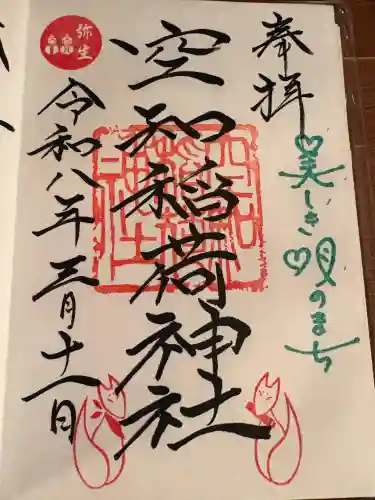 奉拝
美しき唄のまち
空知稲荷神社
弥生
令和八年三月十一日